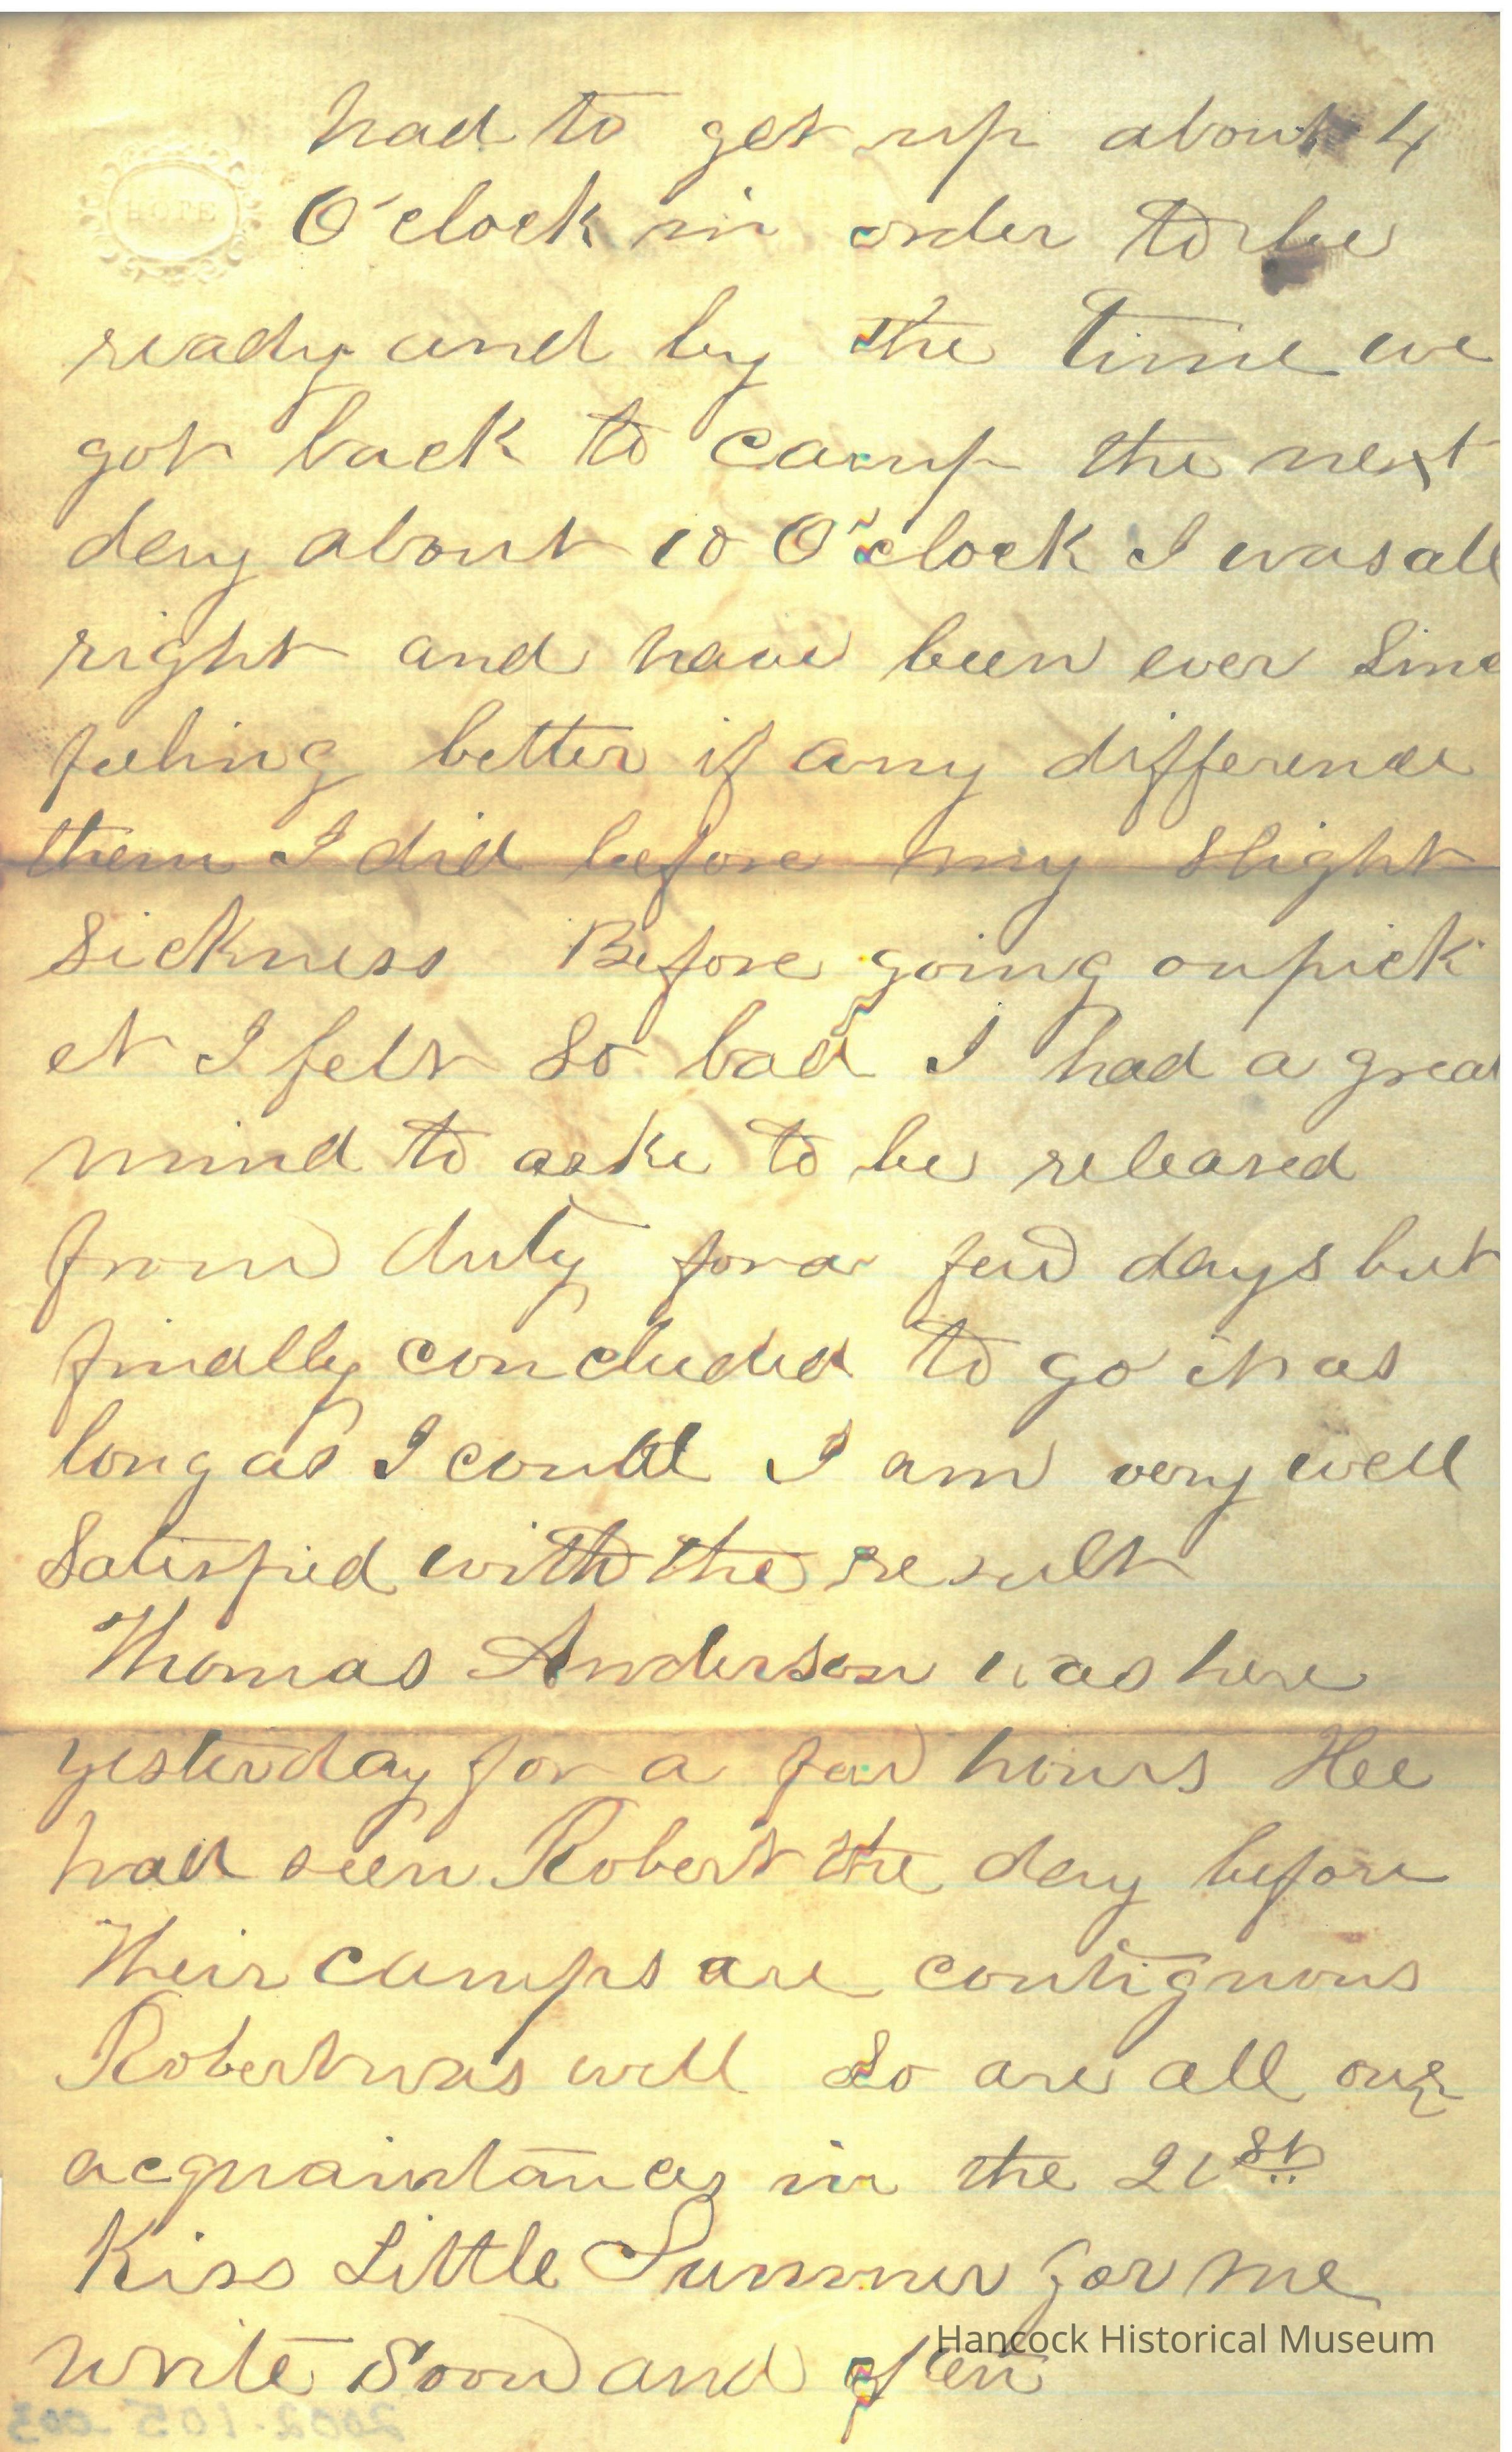 HOPE
had to get up about 4
O'clock in order to be
ready and by the time we
got back to camp the next
day about 10 O'clock I was all
right and have been ever Sinc
feeling better if any difference
them I did before my slight
Sickness Before going on pick
et I felt So bad I had a great
mind to aske to be released
from duty for a few days but
finally concluded to go it as
long as I could I am very well
Satisfied with the result
Thomas Anderson was here
yesterday for a few hours Hee
had seen Robert the day before
Their camps are contiguous
Robert was well So are all our
acquaintances in the 21st
Kiss Little Sumner for me
write Soon and often
Hancock Historical Museum
2002.105.003